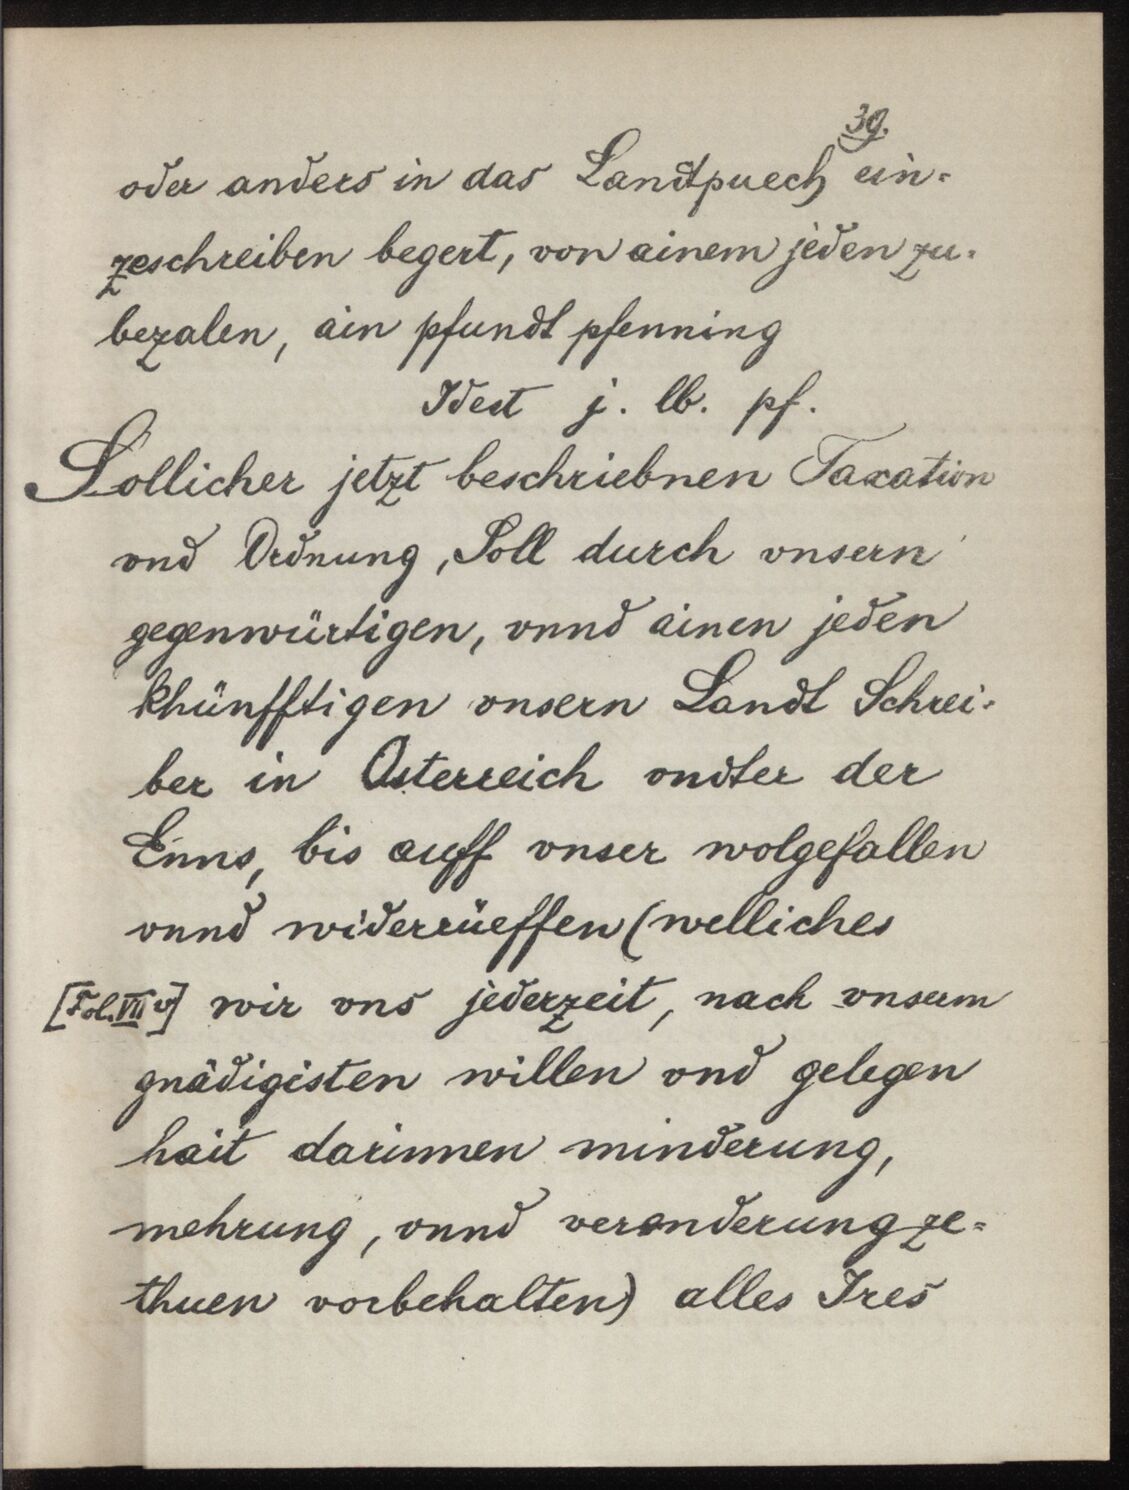 39.
oder anders in das Landtpuech ein-
zeschreiben begert, von ainem jeden zu-
bezalen, ain pfundt pfenning
Idest j. lb. pf.
Sollicher jetzt beschriebnen Taxation
vnd Ordnung, Soll durch vnsern
gegenwürtigen, vnnd ainen jeden
khünfftigen vnsern Landt Schrei-
ber in Osterreich vndter der
Enns, bis auff vnser wolgefallen
vnnd widerrüeffen (welliches
[Fol. VII v] wir vns jederzeit, nach vnserm
gnädigisten willen vnd gelegen
hait darinnen minderung,
mehrung, vnnd veranderung ze-
thuen vorbehalten) alles Ires